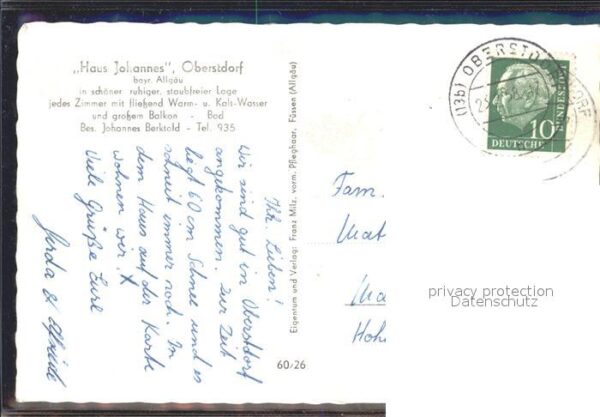 „Haus Johannes", Oberstdorf
bayr. Allgäu
in schöner ruhiger, staubfreier Lage
jedes Zimmer mit fließend Warm- u. Kalt-Wasser
und großem Balkon - Bad
Bes. Johannes Berktold - Tel. 935
Ihr Lieben!
Wir sind gut in Oberstdorf
angekommen. Zur Zeit
liegt 60 cm Schnee und es
schneit immer noch. In
dem Haus auf der Karte
wohnen wir. X
Viele Grüße Eure
Gerda &
Eigentum und Verlag: Franz Milz, vorm. Pfleghaar, Füssen (Allgäu)
60/26
(13b) OBERSTDORF
10
DEUTSCHE
BUNDESPOST
Fam.
Mat
Ma
Hoh
privacy protection
Datenschutz